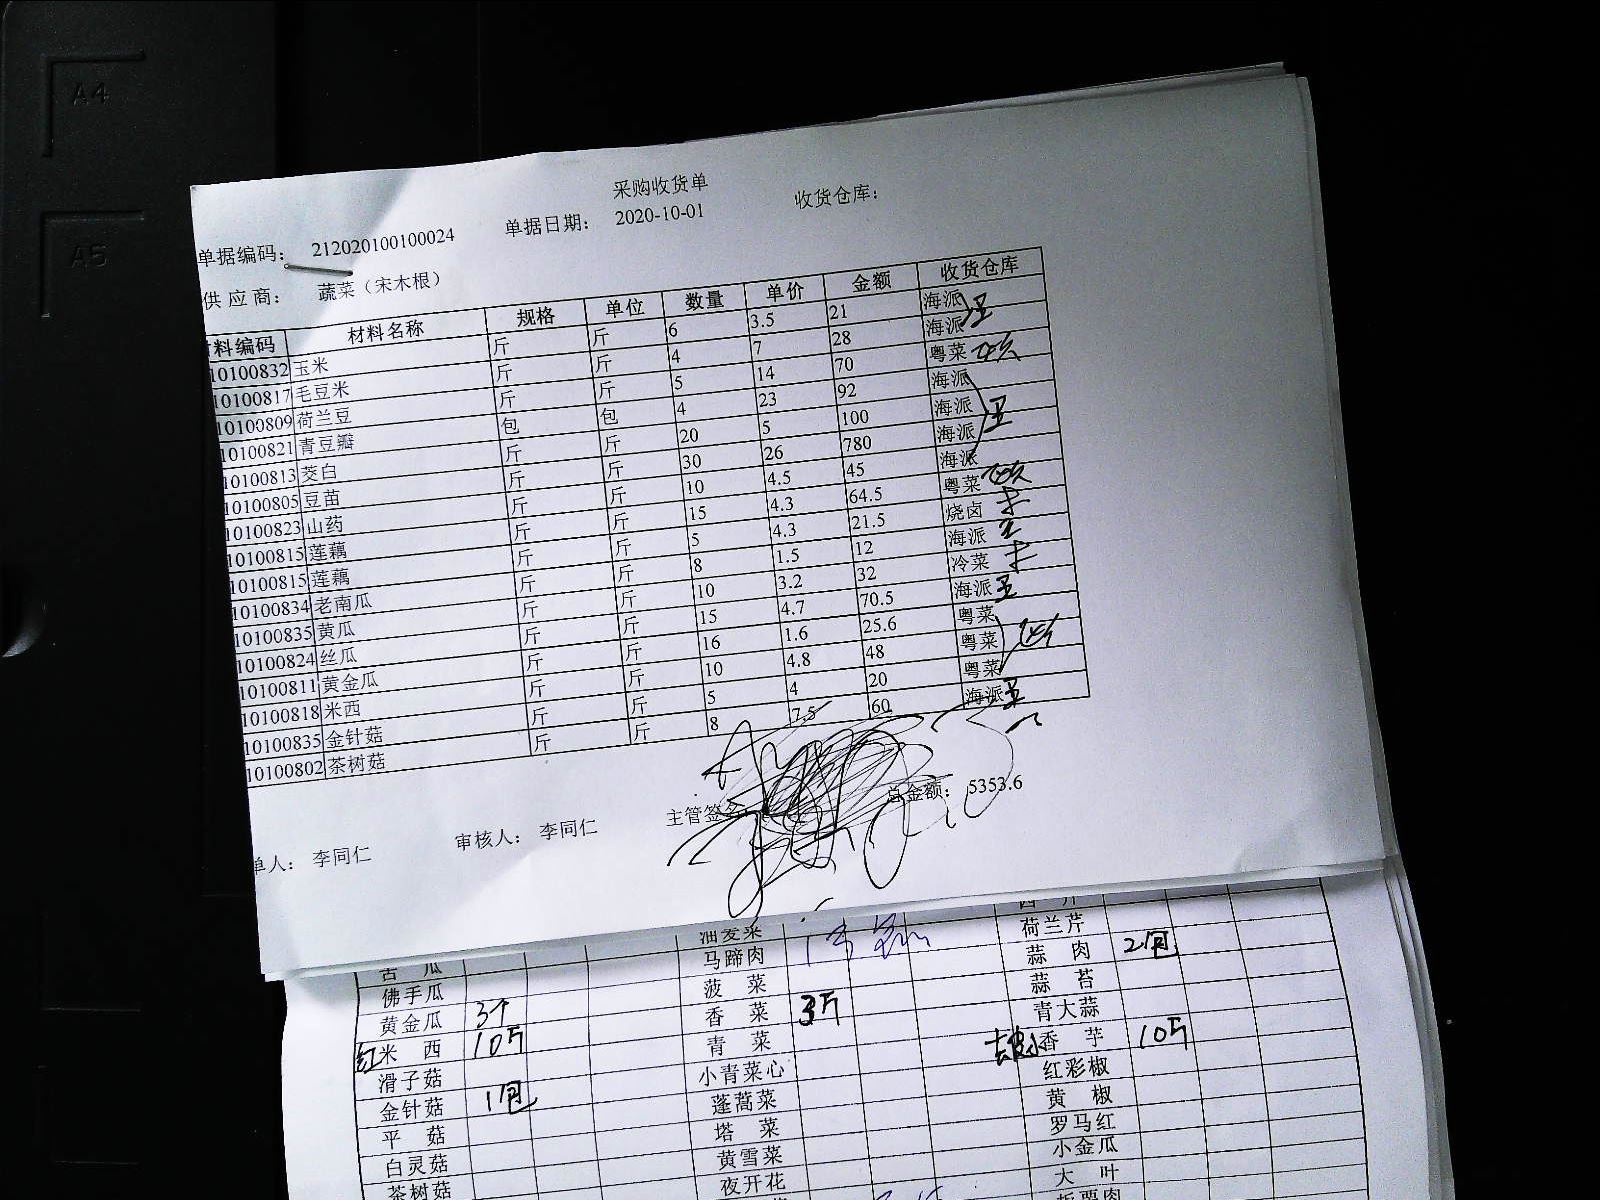 A4
A5
采购收货单
单据编码： 212020100100024 单据日期： 2020-10-01 收货仓库：
供 应 商： 蔬菜（宋木根）
料编码 材料名称 规格 单位 数量 单价 金额 收货仓库
10100832 玉米 斤 斤 6 3.5 21 海派
10100817 毛豆米 斤 斤 4 7 28 海派
10100809 荷兰豆 斤 斤 5 14 70 粤菜
10100821 青豆瓣 包 包 4 23 92 海派
10100813 茭白 斤 斤 20 5 100 海派
10100805 豆苗 斤 斤 30 26 780 海派
10100823 山药 斤 斤 10 4.5 45 海派
10100815 莲藕 斤 斤 15 4.3 64.5 粤菜
10100815 莲藕 斤 斤 5 4.3 21.5 烧卤
10100834 老南瓜 斤 斤 8 1.5 12 海派
10100835 黄瓜 斤 斤 10 3.2 32 冷菜
10100824 丝瓜 斤 斤 15 4.7 70.5 海派
10100811 黄金瓜 斤 斤 16 1.6 25.6 粤菜
10100818 米西 斤 斤 10 4.8 48 粤菜
10100835 金针菇 斤 斤 5 4 20 粤菜
10100802 茶树菇 斤 斤 8 7.5 60 海派
单人： 李同仁 审核人： 李同仁 主管签名 总金额： 5353.6
油麦菜 西 芹
苦 瓜 马蹄肉 荷兰芹
佛手瓜 菠 菜 蒜 肉 2包
黄金瓜 3个 香 菜 3斤 蒜 苔
红米 西 10斤 青 菜 青大蒜
滑子菇 小青菜心 香 芋 10斤
金针菇 1包 蓬蒿菜 红彩椒
平 菇 塔 菜 黄 椒
白灵菇 黄雪菜 罗马红
茶树菇 夜开花 小金瓜
大 叶
板栗肉